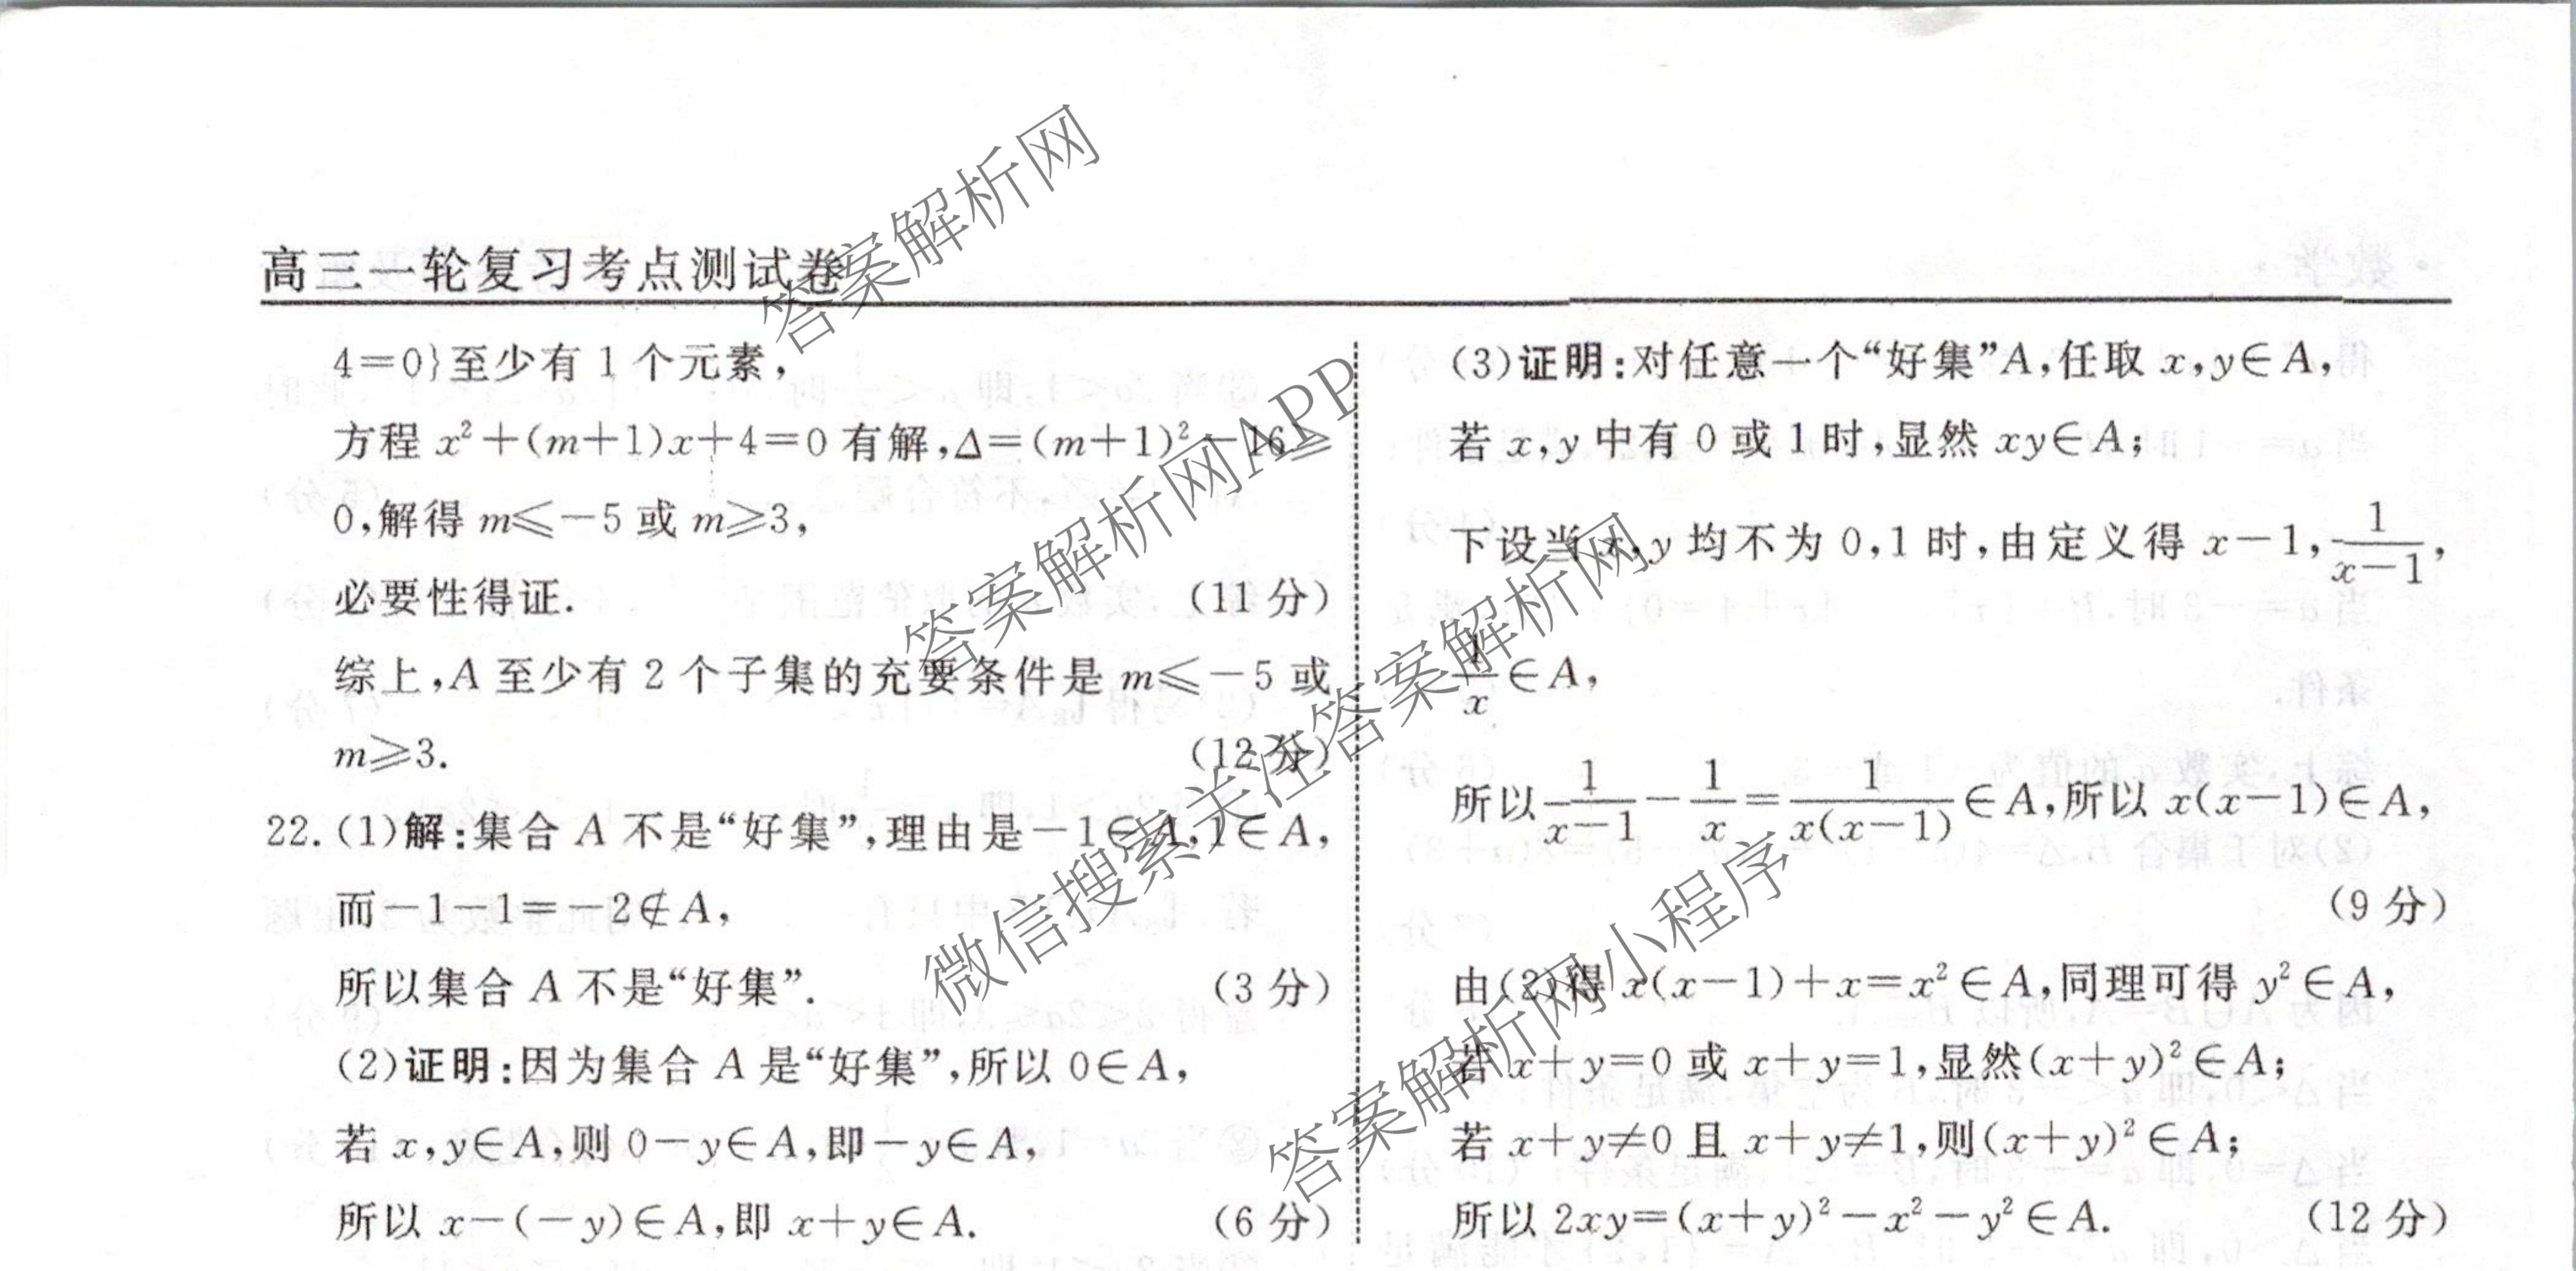 高三一轮复习考点测试卷
4=0}至少有 1 个元素,
方程 x²+(m+1)x+4=0 有解,Δ=(m+1)²-16≥
0,解得 m≤-5 或 m≥3,
必要性得证. (11 分)
综上,A 至少有 2 个子集的充要条件是 m≤-5 或
m≥3. (12 分)
22.(1)解:集合 A 不是“好集”,理由是-1∈A,1∈A,
而-1-1=-2∉A,
所以集合 A 不是“好集”. (3 分)
(2)证明:因为集合 A 是“好集”,所以 0∈A,
若 x,y∈A,则 0-y∈A,即-y∈A,
所以 x-(-y)∈A,即 x+y∈A. (6 分)
(3)证明:对任意一个“好集”A,任取 x,y∈A,
若 x,y 中有 0 或 1 时,显然 xy∈A;
下设当 x,y 均不为 0,1 时,由定义得 x-1,1/(x-1),
1/x∈A,
所以 1/(x-1)-1/x=1/(x(x-1))∈A,所以 x(x-1)∈A,
(9 分)
由(2)得 x(x-1)+x=x²∈A,同理可得 y²∈A,
若 x+y=0 或 x+y=1,显然(x+y)²∈A;
若 x+y≠0 且 x+y≠1,则(x+y)²∈A;
所以 2xy=(x+y)²-x²-y²∈A. (12 分)
答案解析网
答案解析网APP
微信搜索关注答案解析网
答案解析网小程序